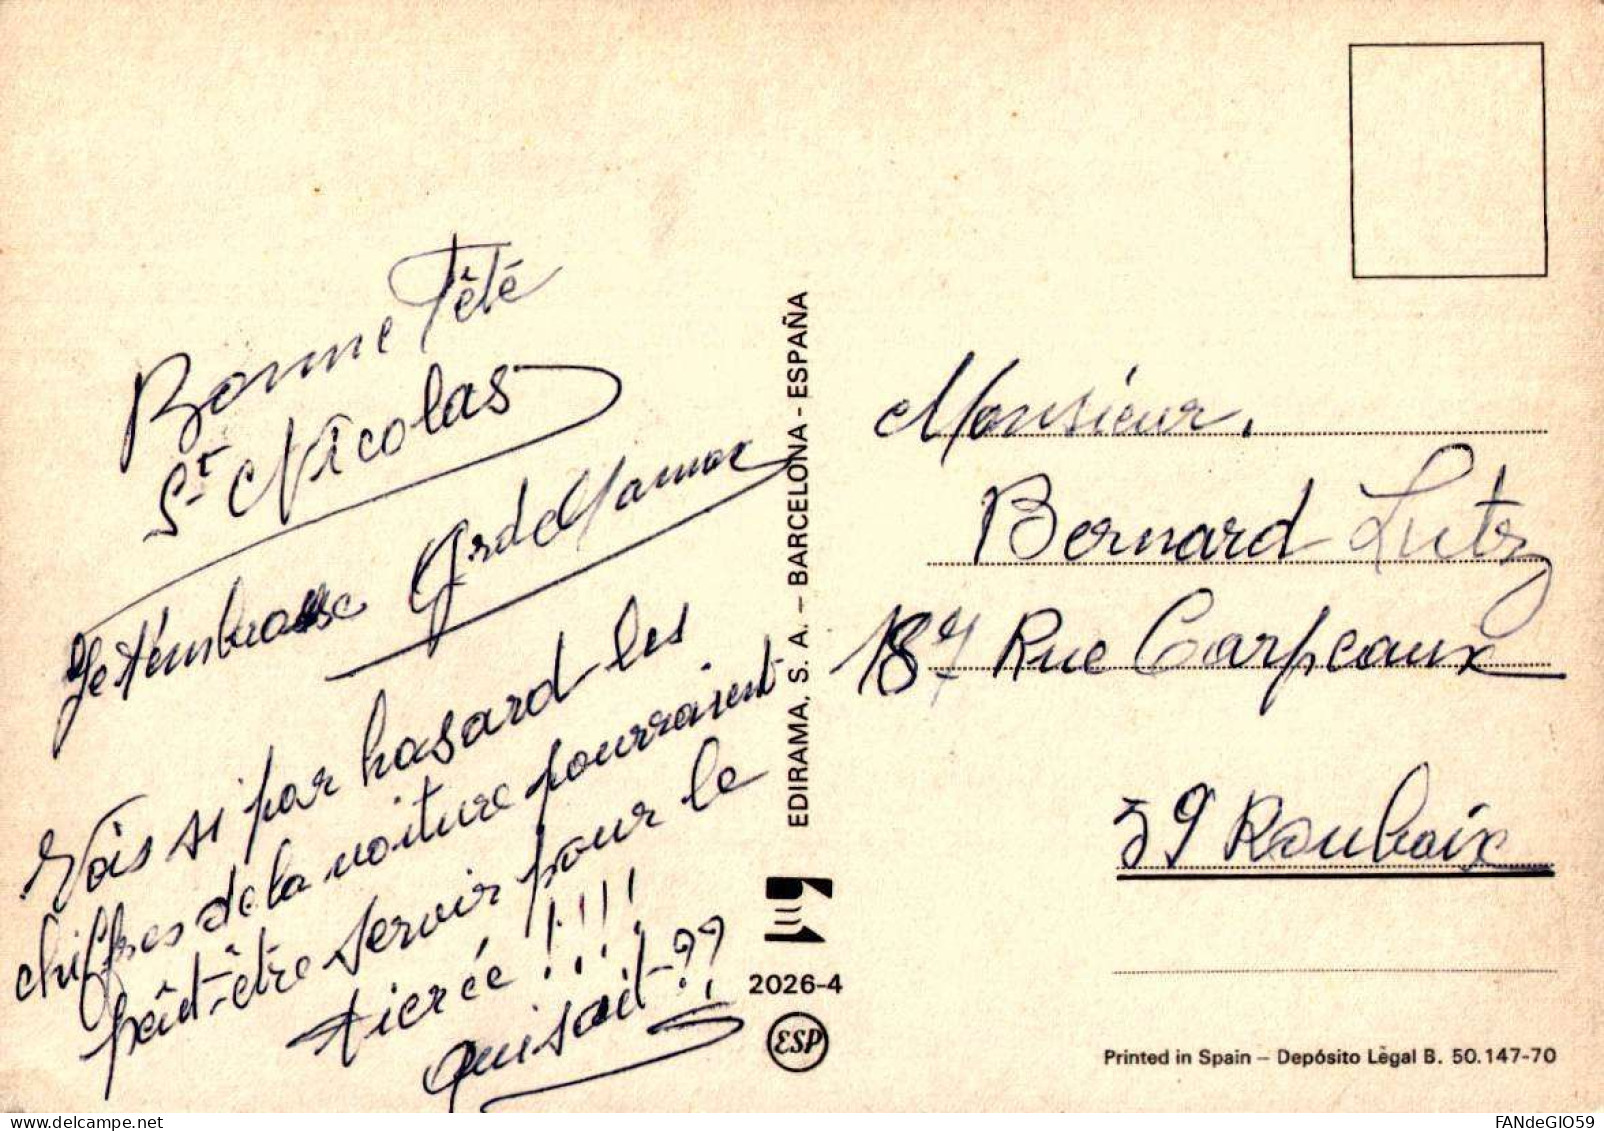 Bonne Fêté
St Nicolas
Je t'embrasse Grd Maman
Vois si par hasard les
chiffres de la voiture pourraient
peût-être servoir pour le
tiercée !!!!
qui sait ??
EDIRAMA, S. A. – BARCELONA - ESPAÑA
2026-4
ESP
Monsieur.
Bernard Lutz
187 Rue Carpeaux
59 Roubaix
Printed in Spain – Depósito Lègal B. 50.147-70
FANdeGIO59